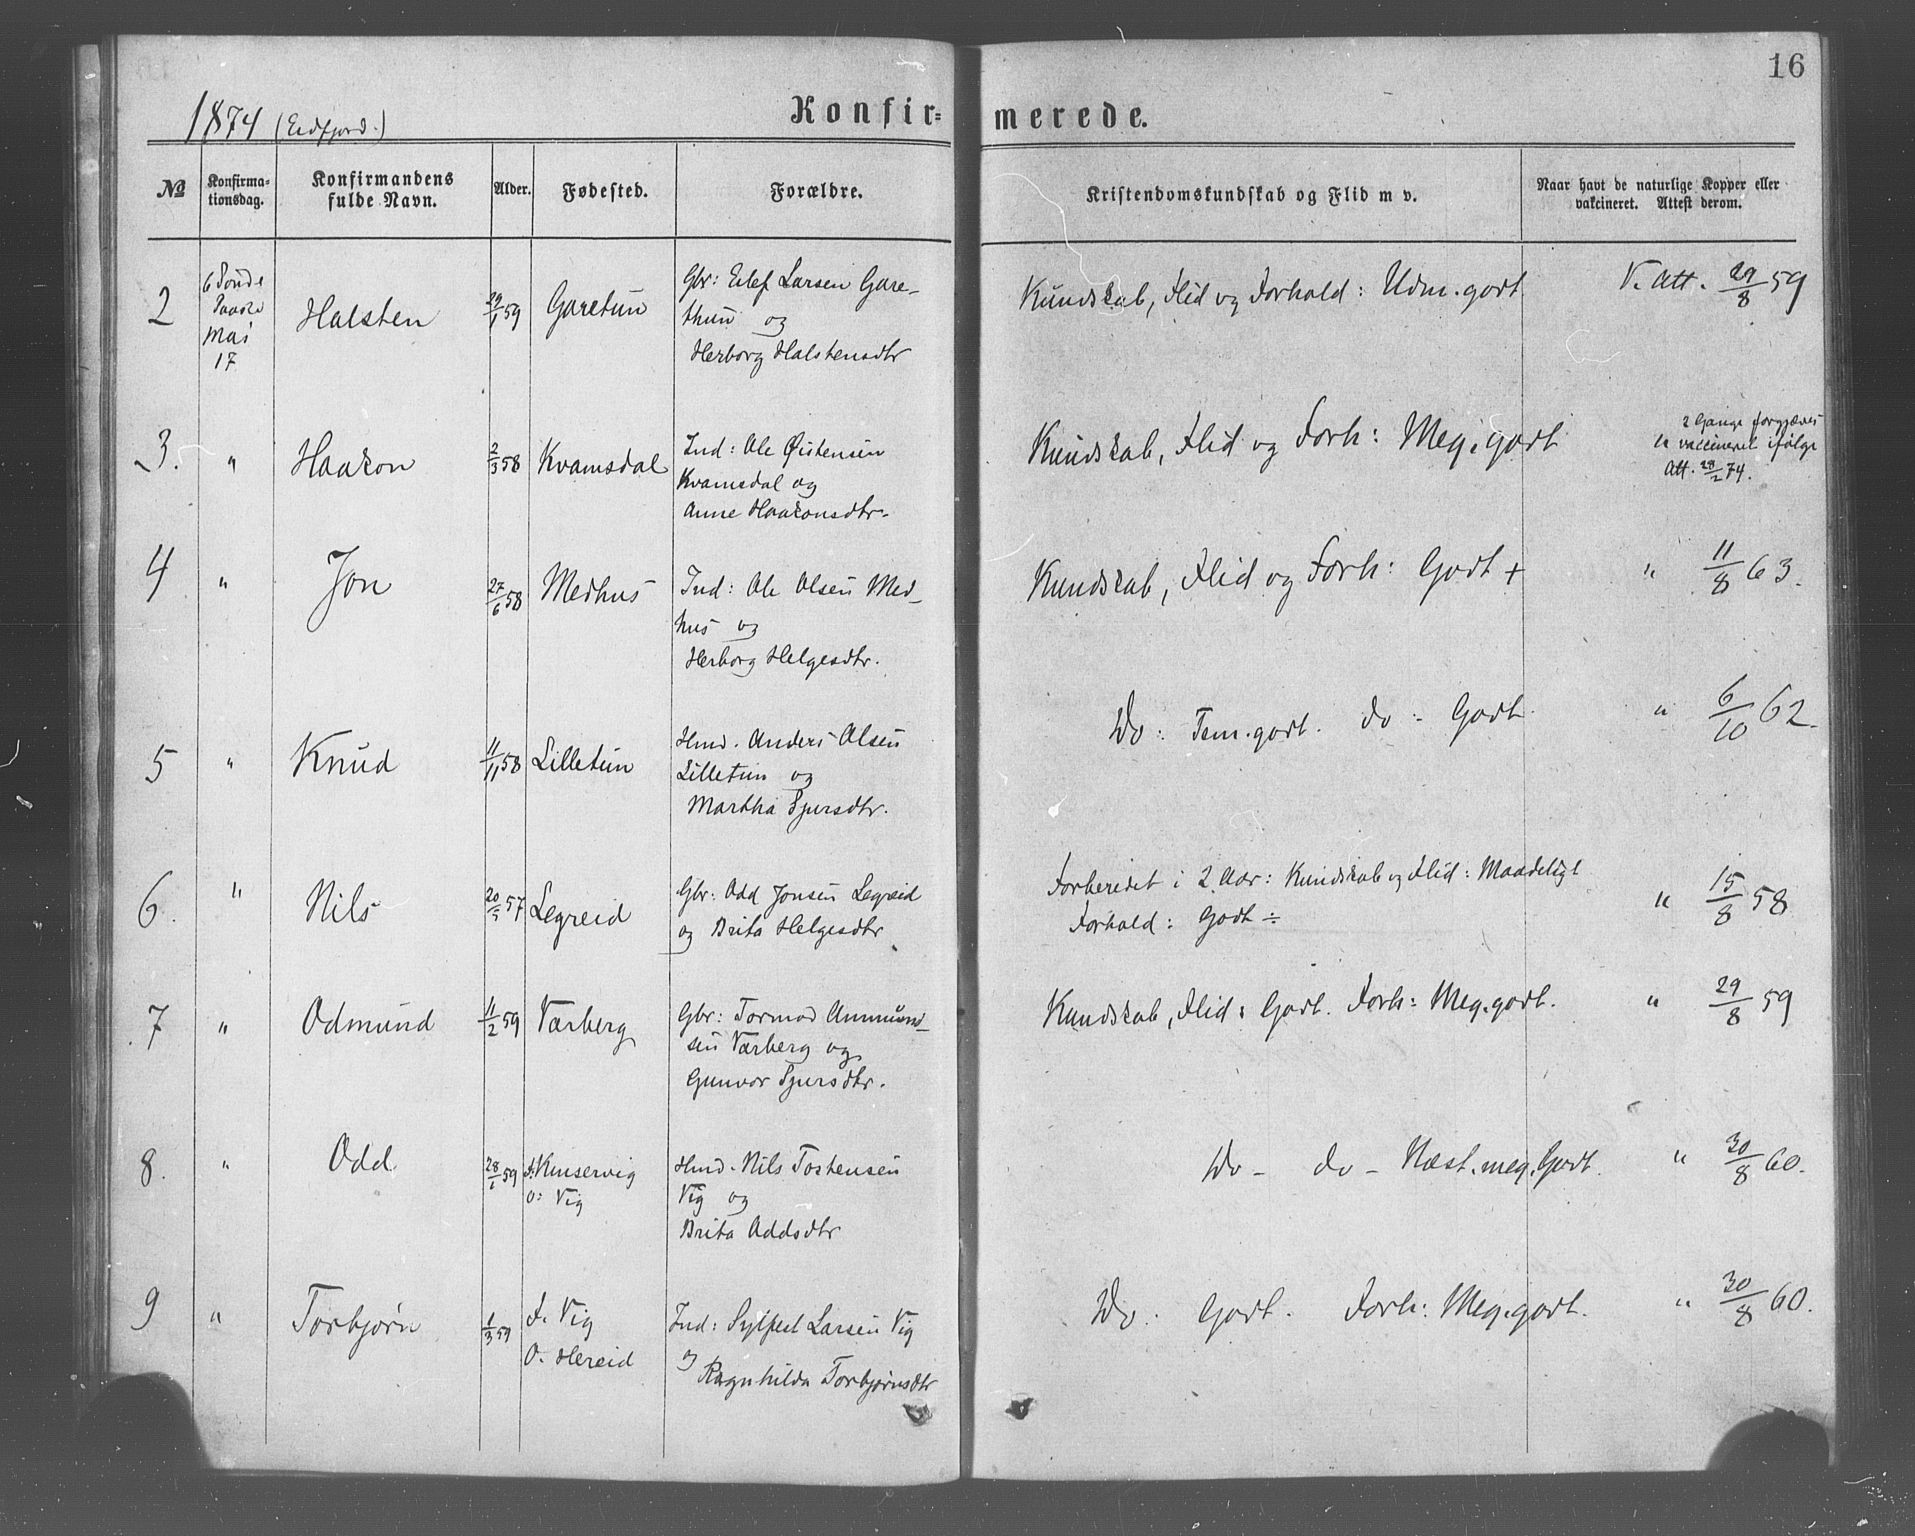 16
1874 (Eidfjord.)
Konfir=
merede.
№
Konfirma-
tionsdag.
Konfirmandens
fulde Navn.
Alder.
Fødested.
Forældre.
Kristendomskundskab og Flid m v.
Naar havt de naturlige Kopper eller
vakcineret. Attest derom.
2
6 Sond e
Paaske
Mai
17
Halsten
29/1 59
Garetun
Gbr: Eilef Larsen Gare-
thun og
Herborg Halstensdtr
Kundskab, Flid og Forhold: Udm. godt
V. Att. 29/8 59
3.
"
Haakon
2/3 58
Kvamsdal
Ind: Ole Øistensen
Kvamsdal og
Anne Haakonsdtr.
Kundskab, Flid og Forh: Meg. godt
2 Gange forgjæves
vaccineret ifølge
Att. 28/2 74.
4
"
Jon
27/6 58
Medhus
Ind: Ole Olsen Med-
hus og
Herborg Helgesdtr.
Kundskab, Flid og Forh: Godt +
" 11/8 63.
5
"
Knud
11/11 58
Lilletun
Hmd. Anders Olsen
Lilletun og
Martha Sjursdtr.
Do: Tem. godt. do - Godt
" 6/10 62.
6.
"
Nils
20/5 57
Legreid
Gbr: Odd Jonsen Legreid
og Brita Helgesdtr
Forberedet i 2 Aar: Kundskab og Flid: Maadeligt
Forhold: Godt ÷
" 15/8 58
7
"
Odmund
11/2 59
Værberg
Gbr: Tormod Ammund-
sen Værberg og
Gunvor Sjursdtr.
Kundskab, Flid: Godt. Forh: Meg. godt.
" 29/8 59
8.
"
Odd
28/1 59
f. Kinservig
O: Vig
Hmd. Nils Tostensen
Vig og
Brita Oddsdtr
Do - do - Næst. meg. Godt.
" 30/8 60.
9
"
Torbjørn
1/3 59
f. Vig
O. Hereid
Ind: Sylfest Larsen Vig
og
Ragnhilda Torbjørnsdtr
Do. Godt. Forh: Meg. godt.
" 30/8 60.